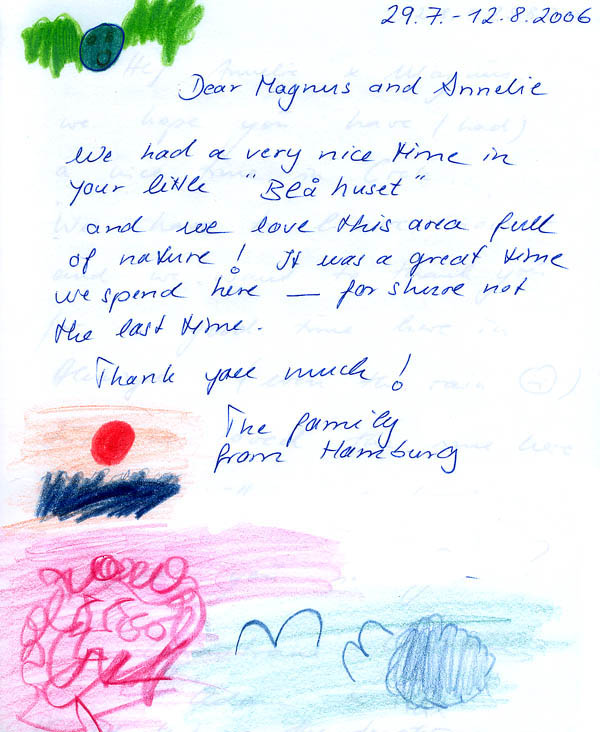 29.7.-12.8.2006
Dear Magnus and Annelie
We had a very nice time in
your little "Blå huset"
and we love this area full
of nature! It was a great time
we spend here — for shure not
the last time.
Thank you much!
The family
from Hamburg